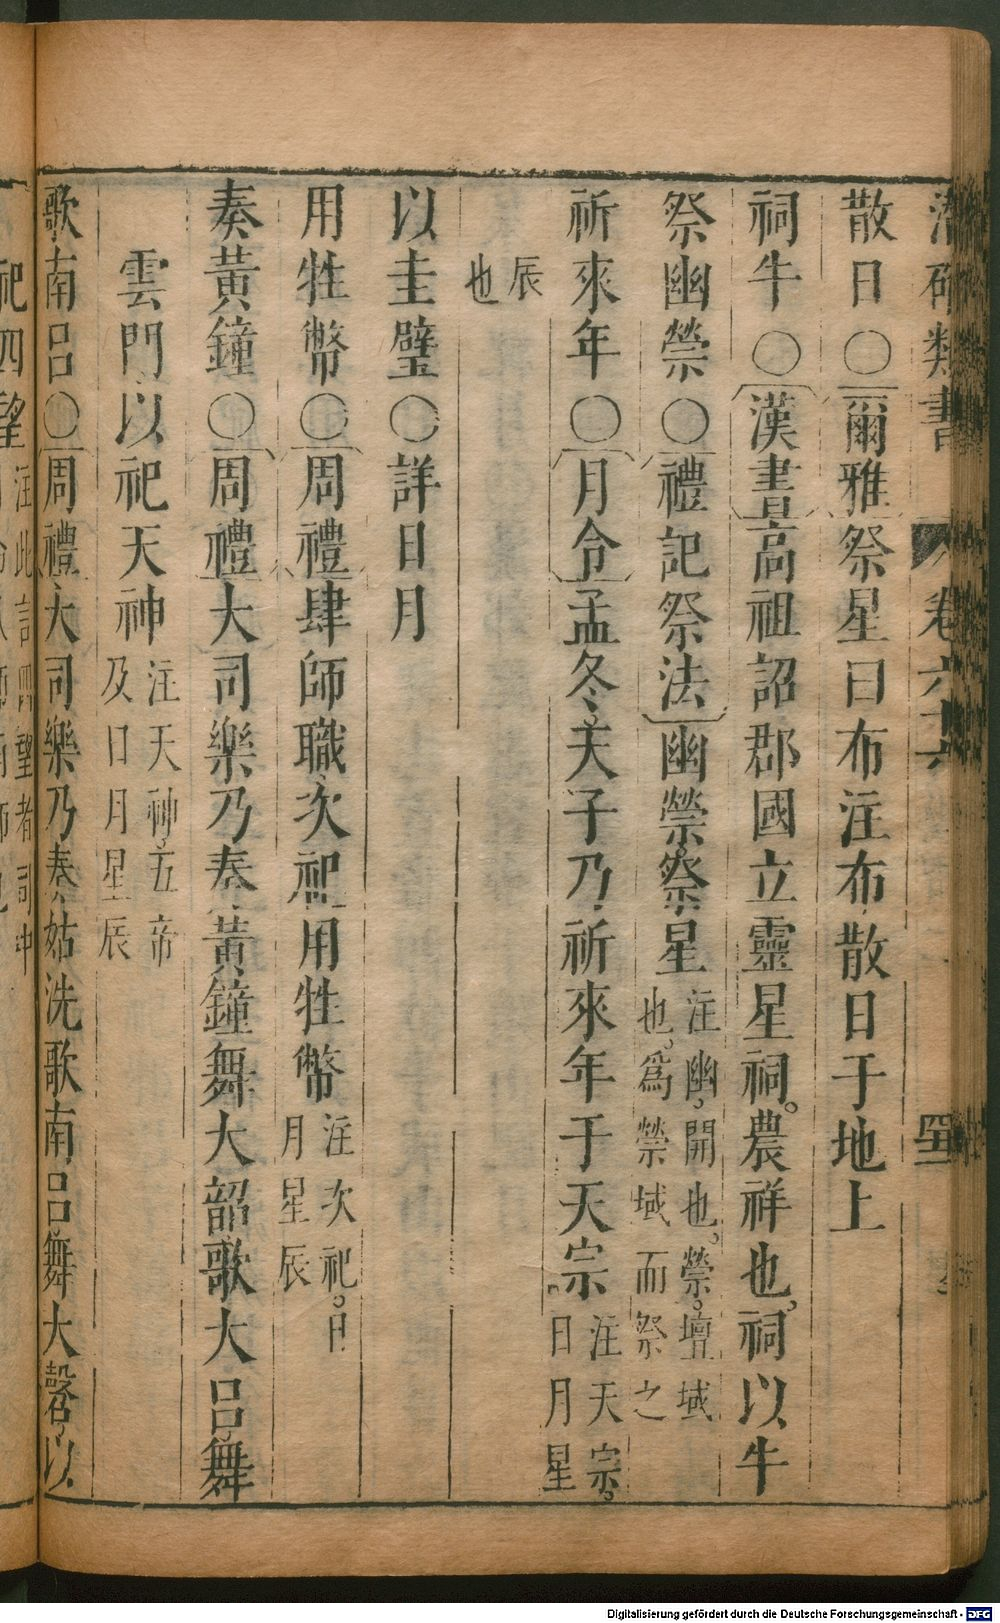 潛確類書 卷六 四五
散日○爾雅祭星曰布注布散日于地上
祠牛○漢書高祖詔郡國立靈星祠。農祥也。祠以牛
祭幽禜○禮記祭法幽禜。祭星注幽。開也。禜。壇域也。為禜域而祭之
祈來年○月令孟冬。天子乃祈來年于天宗注天宗。日月星
辰也
以圭璧○詳日月
用牲幣○周禮肆師職次祀用牲幣注次祀。日月星辰
奏黃鐘○周禮大司樂乃奏黃鐘舞大韶歌大呂舞
雲門以祀天神注天神。五帝及日月星辰
歌南呂○周禮大司樂乃奏姑洗歌南呂舞大磬以
祀四望注此言四望者司中
Digitalisierung gefördert durch die Deutsche Forschungsgemeinschaft - DFG